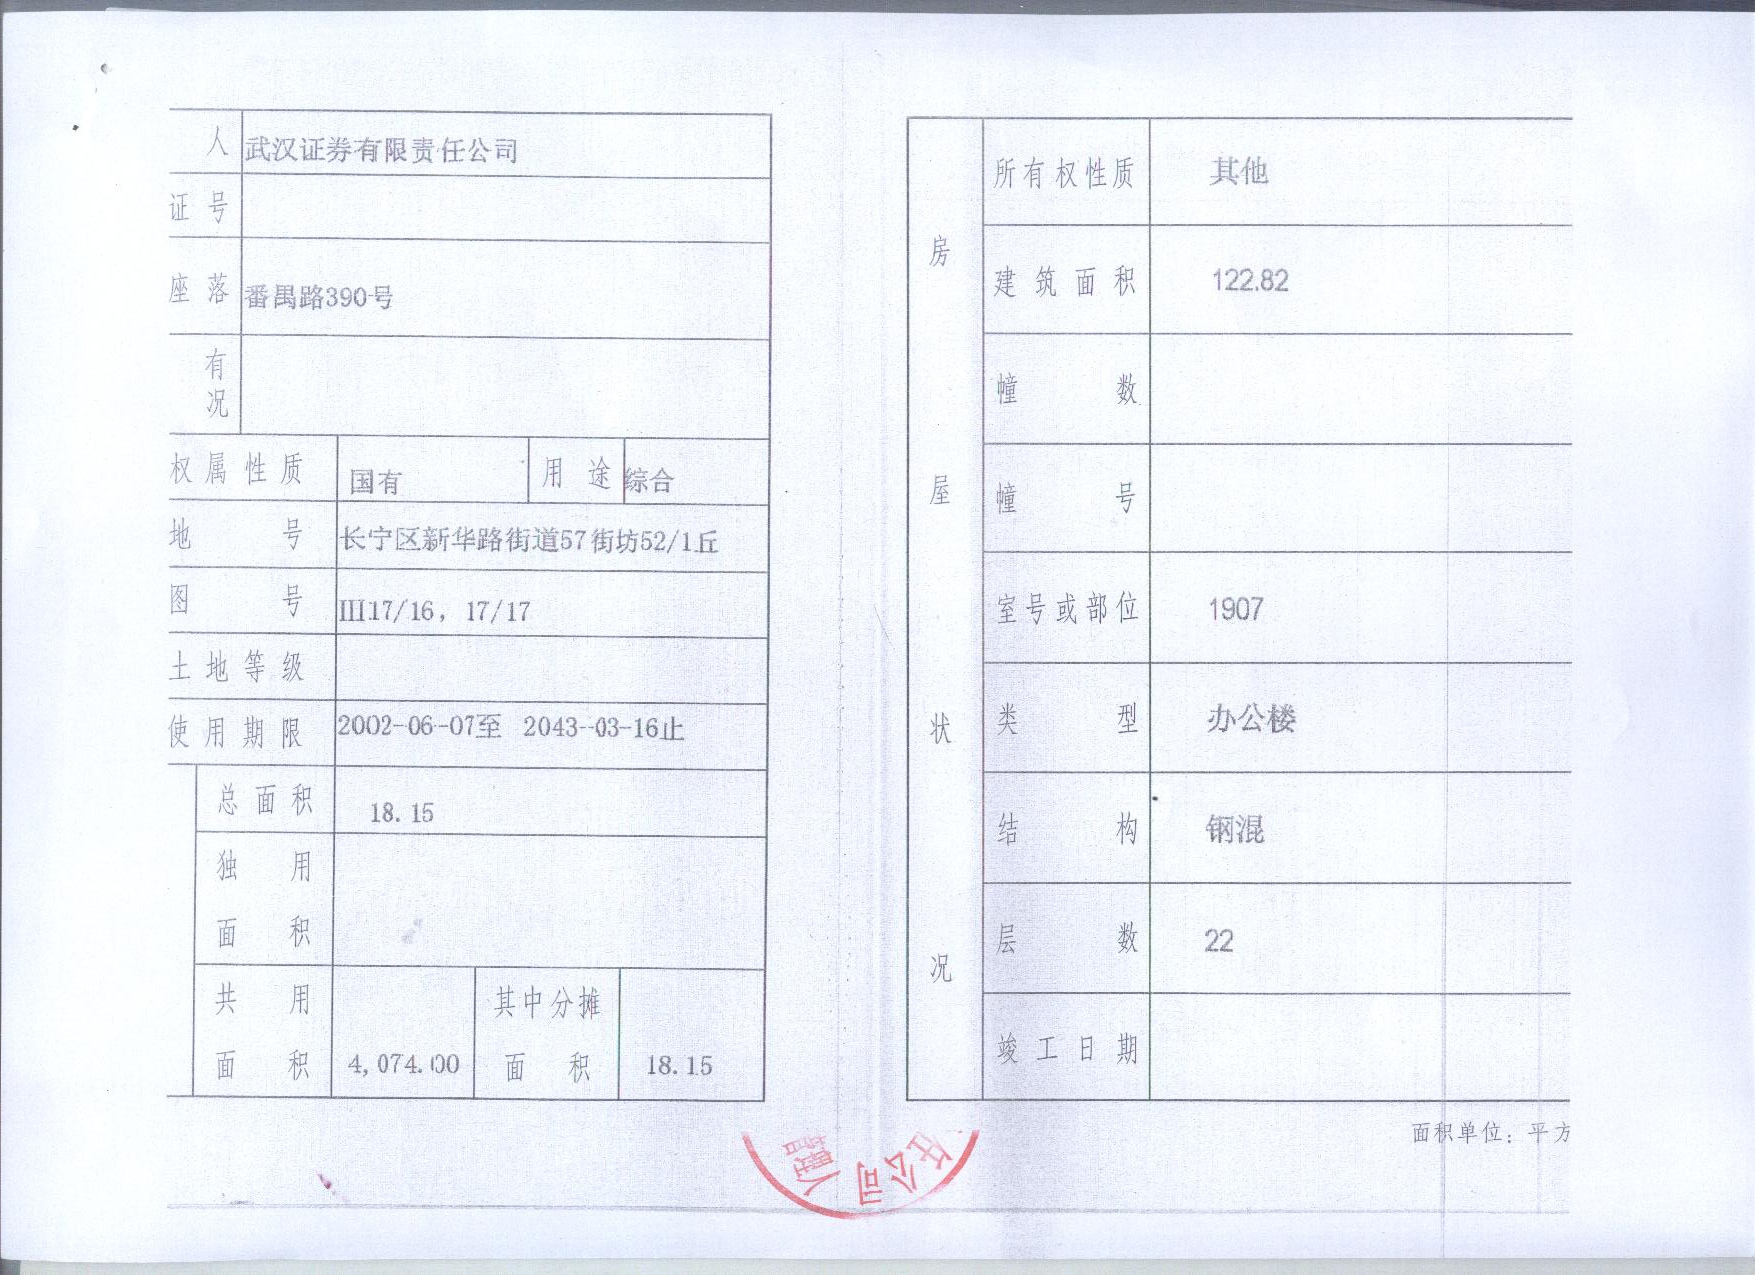 人 武汉证券有限责任公司
证号
座落 番禺路390号
有
况
权属性质 国有 用途 综合
地号 长宁区新华路街道57街坊52/1丘
图号 III17/16, 17/17
土地等级
使用期限 2002-06-07至 2043-03-16止
总面积 18.15
独用
面积
共用 其中分摊
面积 4,074.00 面积 18.15
房屋状况
所有权性质 其他
建筑面积 122.82
幢数
幢号
室号或部位 1907
类型 办公楼
结构 钢混
层数 22
竣工日期
面积单位：平方
任公司
管理人